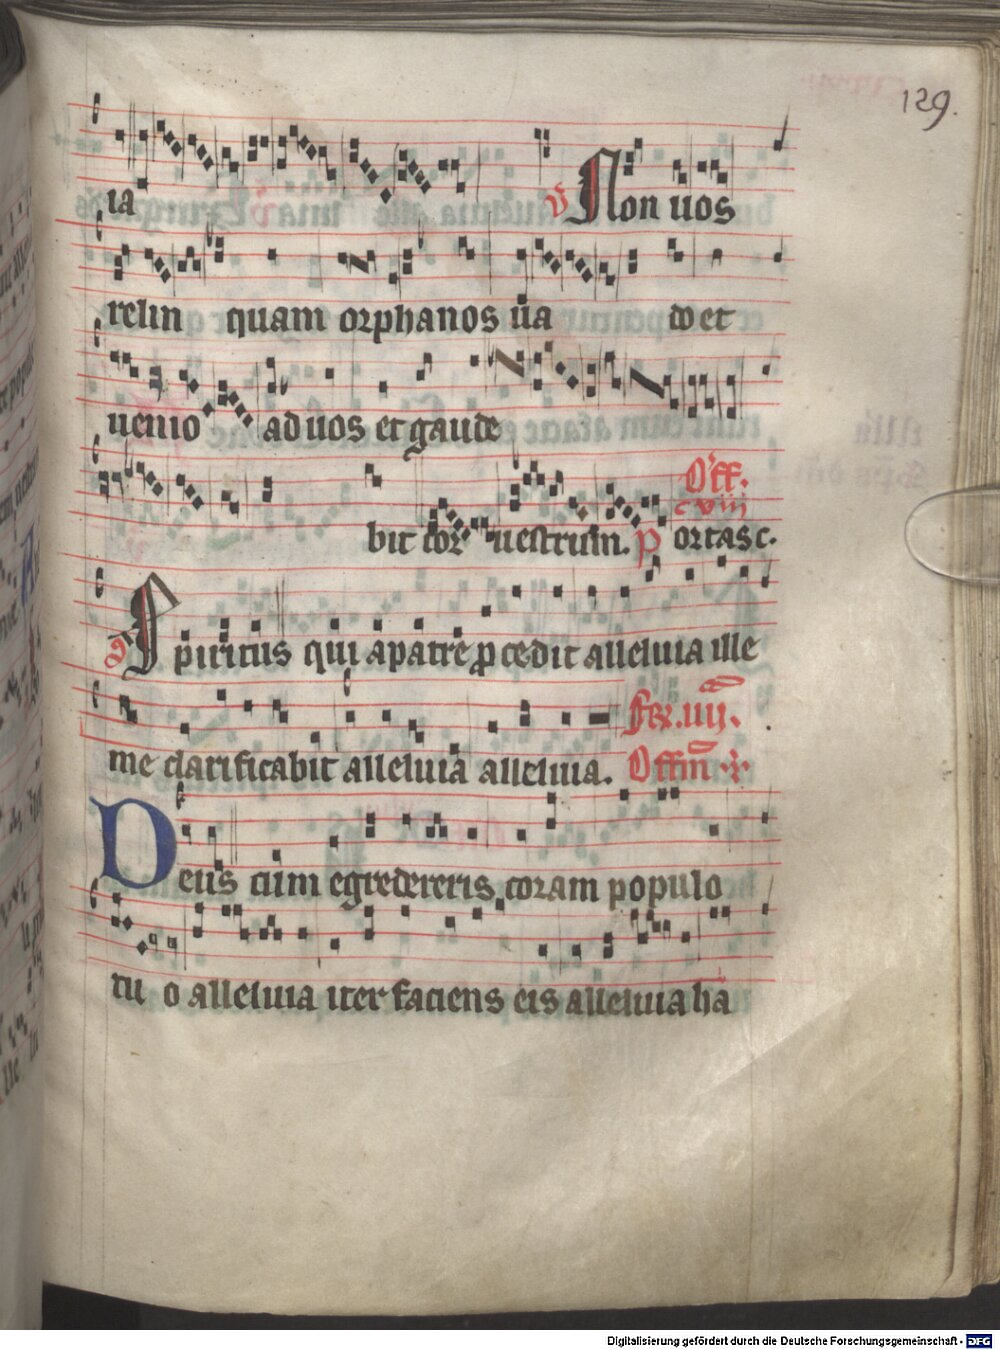 129.
ia V Non uos
relin quam orphanos ua do et
uenio ad uos et gaude
Off.
cviii
bit cor uestrum. Portas c.
V Spiritus qui a patre pcedit alleluia ille
me clarificabit alleluia alleluia. Fer. iiij.
Offm
Deus cum egredereris coram populo
tu o alleluia iter faciens eis alleluia ha
Digitalisierung gefördert durch die Deutsche Forschungsgemeinschaft - DFG